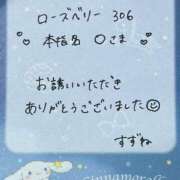 ローズベリー 306
本指名 〇さま
お誘いいただき
ありがとうございました☺
すずね
cinnamoroll